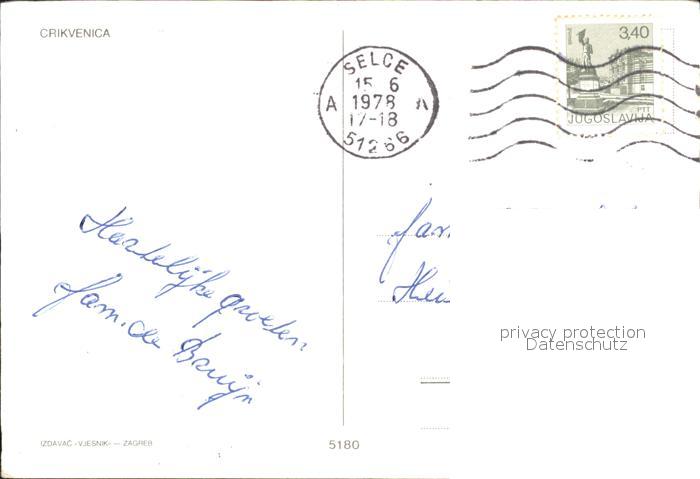 CRIKVENICA
SELCE
15 6
A 1978 A
17-18
51266
3,40
PTT
JUGOSLAVIJA
Hartelijke groeten
fam. de Bruijn
fam.
privacy protection
Datenschutz
IZDAVAČ »VJESNIK« — ZAGREB
5180